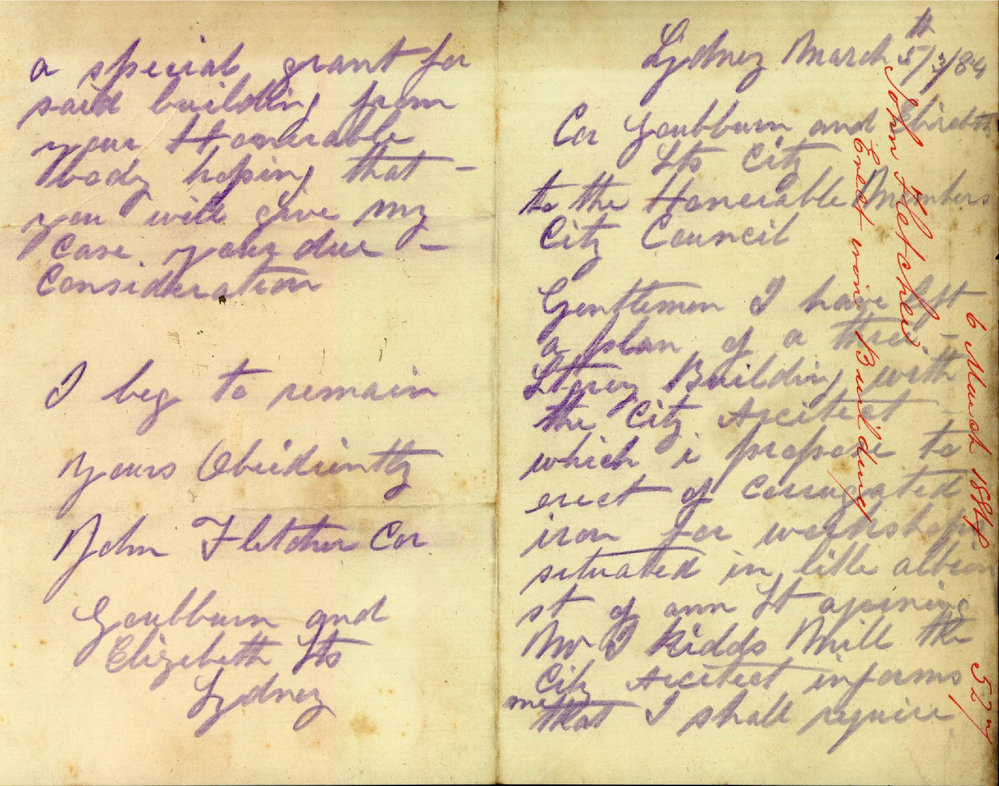 Sydney March 5th/3/84
Cor Goulbburn and Elizebeth
Sts City
to the Honerable Members
City Council
Gentlemen I have left
a plan of a three -
Storey Building with
the City Arcitect -
which i propose to
erect of corrugated
iron for workshops
situated in little albion
st of ann St ajoining
Mr J Kidds Mill the
City Arcitect informs
me
that I shall require
a special grant for
said building from
your Honerable
body hoping that -
you will give my
Case your due -
Consideration
I beg to remain
Yours Obidiently
John Fletcher Cor.
Goulbburn and
Elizebeth Sts
Sydney
John Fletcher
Erect iron Building
6 March 1884
527